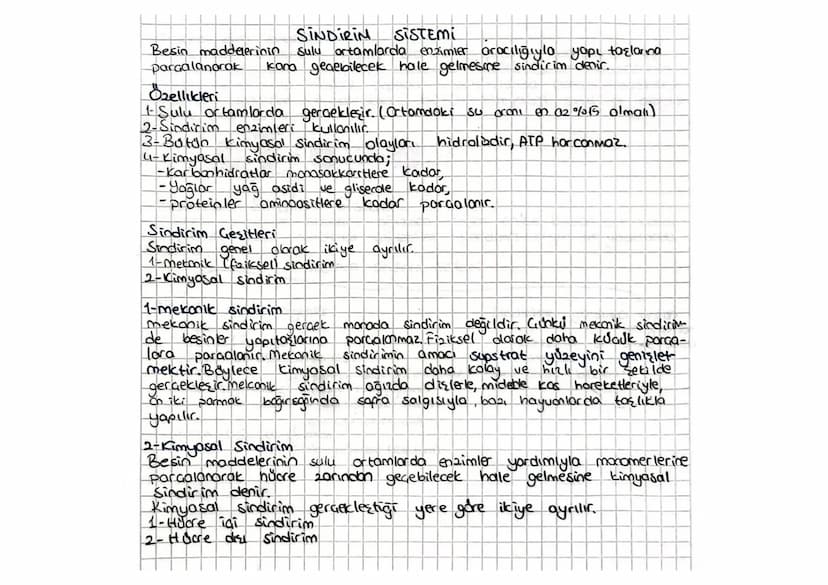 SİNDİRİM SİSTEMİ
Besin maddelerinin sulu ortamlarda enzimler aracılığıyla yapı taşlarına
parçalanarak kana geçebilecek hale gelmesine sindirim denir.
Özellikleri
1-Sulu ortamlarda gerçekleşir. (Ortamdaki su oranı en az %15 olmalı)
2-Sindirim enzimleri kullanılır.
3-Bütün kimyasal sindirim olayları hidrolizdir, ATP harcanmaz.
4-Kimyasal sindirim sonucunda;
-Karbonhidratlar monosakkaritlere kadar,
-Yağlar yağ asidi ve gliserole kadar,
-proteinler aminoasitlere kadar parçalanır.
Sindirim Çeşitleri
Sindirim genel olarak ikiye ayrılır.
1-mekanik (fiziksel) sindirim
2-Kimyasal sindirim
1-mekanik sindirim
mekanik sindirim gerçek manada sindirim değildir. Çünkü mekanik sindirim-
de besinler yapıtaşlarına parçalanmaz. Fiziksel olarak daha küçük parça-
lara parçalanır. Mekanik sindirimin amacı substrat yüzeyini genişlet
mektir. Böylece kimyasal sindirim daha kolay ve hızlı bir şekilde
gerçekleşir. mekanik sindirim ağızda dişlerle, midede kas hareketleriyle,
on iki parmak bağırsağında safra salgısıyla, bazı hayvanlarda taşlıkla
yapılır.
2-Kimyasal Sindirim
Besin maddelerinin sulu ortamlarda enzimler yardımıyla monomerlerine
parçalanarak hücre zarından geçebilecek hale gelmesine kimyasal
sindirim denir.
Kimyasal sindirim gerçekleştiği yere göre ikiye ayrılır.
1-Hücre içi sindirim
2-Hücre dışı sindirim